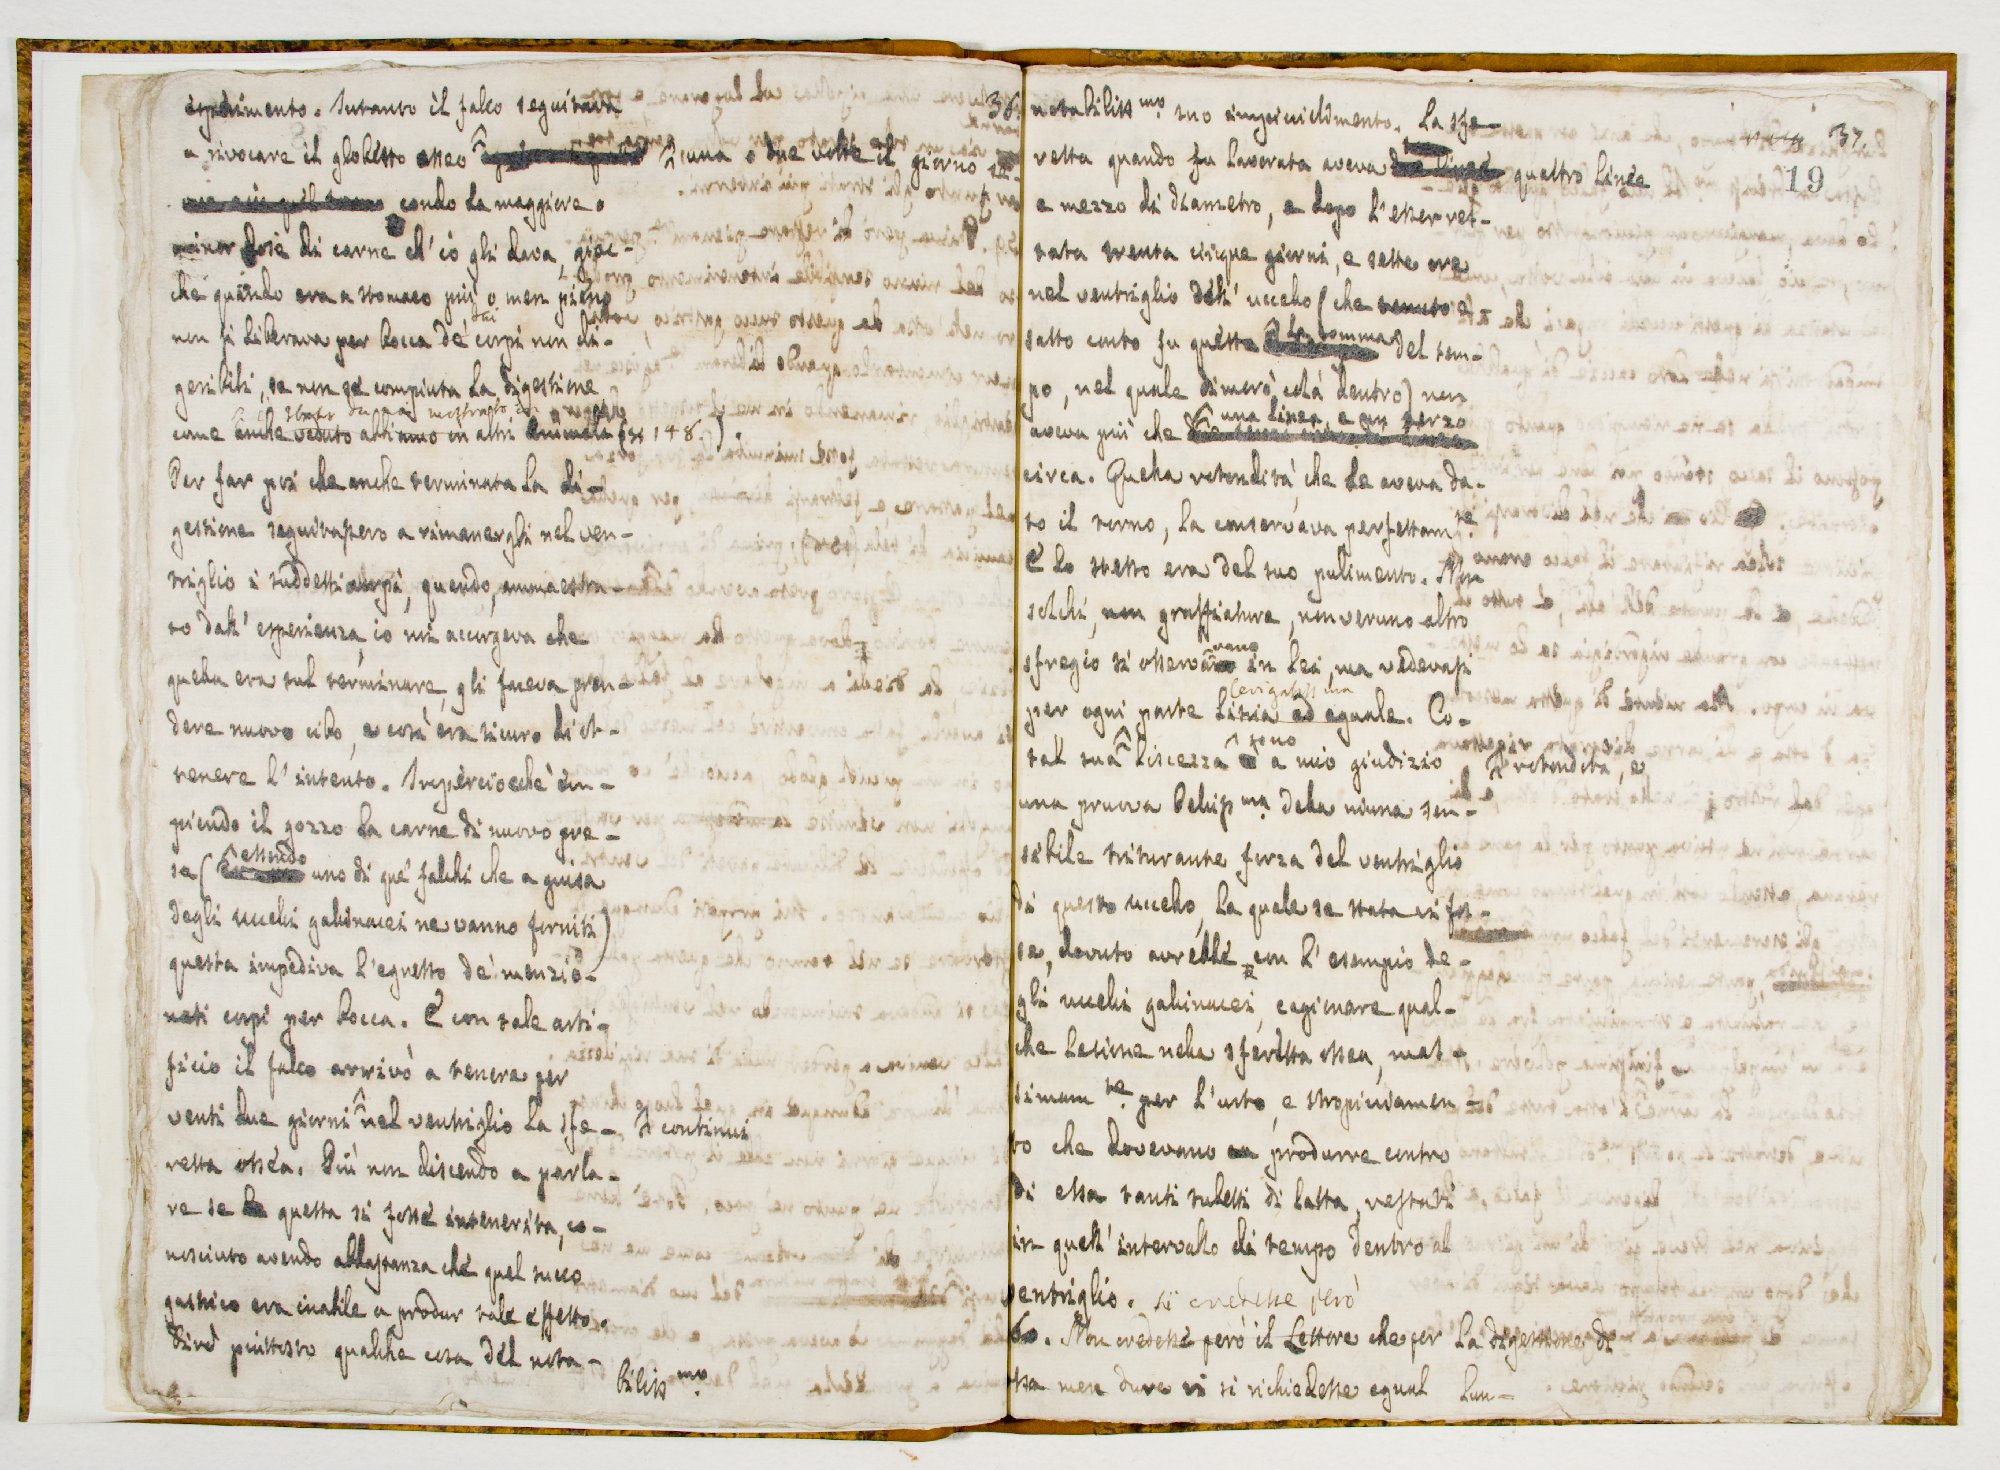 36.
esperimento. Intanto il falco seguitava
a rivocare il globetto osseo una o due volte il giorno se-
condo la maggiore o
minor dose di carne ch'io gli dava, giac-
che quando era a stomaco più o men pieno
non si liberava per bocca dai corpi non di-
geribili, se non se compiuta la digestione
come anche veduto abbiamo in altri Animali (§ 148).
Per far poi che anche terminata la di-
gestione seguitassero a rimanergli nel ven-
triglio i suddetti corpi, quando, ammaestra-
to dall'esperienza, io mi accorgeva che
quella era sul terminare, gli faceva pren-
dere nuovo cibo, e così era sicuro di ot-
tenere l'intento. Imperciocchè em-
piendo il gozzo la carne di nuovo pre-
sa (essendo uno di que' falchi che a guisa
degli uccelli gallinacei ne vanno forniti)
questa impediva l'egresso de' menzio-
nati corpi per bocca. E con tale arti-
ficio il falco arrivò a tenere per
venti due giorni continui nel ventriglio la sfe-
retta ossea. Più non discendo a parla-
re se questa si fosse intenerita, co-
nosciuto avendo abbastanza che quel succo
gastrico era inabile a produr tale effetto.
Dirò piuttosto qualche cosa del nota-
biliss.mo
37.
19
notabiliss.mo suo impicciolimento. La sfe-
retta quando fu lavorata aveva quattro linee
e mezzo di diametro, e dopo l'esser res-
tata trenta cinque giorni, e sette ore
nel ventriglio dell'uccello (che tenuto e-
satto conto fu questa la somma del tem-
po, nel quale dimorò colà dentro) non
aveva più che una linea, e un terzo
circa. Quella rotondità che le aveva da-
to il torno, la conservava perfettam.te
E lo stesso era del suo pulimento. Non
solchi, non graffiature, non veruno altro
sfregio si osservavano in lei, ma vedevasi
levigatissima
per ogni parte liscia ed eguale. Co-
tal sua rotondità, e liscezza sono a mio giudizio
una pruova belliss.ma della niuna sen-
sibile triturante forza del ventriglio
di questo uccello, la quale se stata vi fos-
se, dovuto avrebbe con l'esempio de-
gli uccelli gallinacei, cagionare qual-
che lesione nella sferetta ossea, mas-
simam.te per l'urto, e stropicciamen-
to che dovevano produrre contro
di essa tanti tubetti di latta, restati
in quell'intervallo di tempo dentro al
ventriglio. si credesse però
60. Non credesse però il Lettore che per la digestione di
ssa men dure vi si richiedesse egual lun-